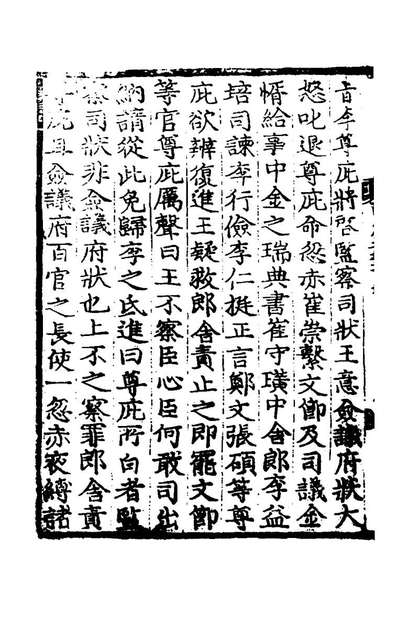 旨李尊庇將啓監察司狀王意僉議府狀大
怒叱退尊庇命忽赤崔崇繫文節及司議金
㥠給事中金之瑞典書崔守璜中舍郎李益
培司諫李行儉李仁挺正言鄭文張碩等尊
庇欲辨復進王疑救郎舍責止之即罷文節
等官尊庇厲聲曰王不察臣心臣何敢司出
納請從此免歸李之氐進曰尊庇所白者監
察司狀非僉議府狀也上不之察罪郎舍責
尊庇且僉議府百官之長使一忽赤夜縛諸